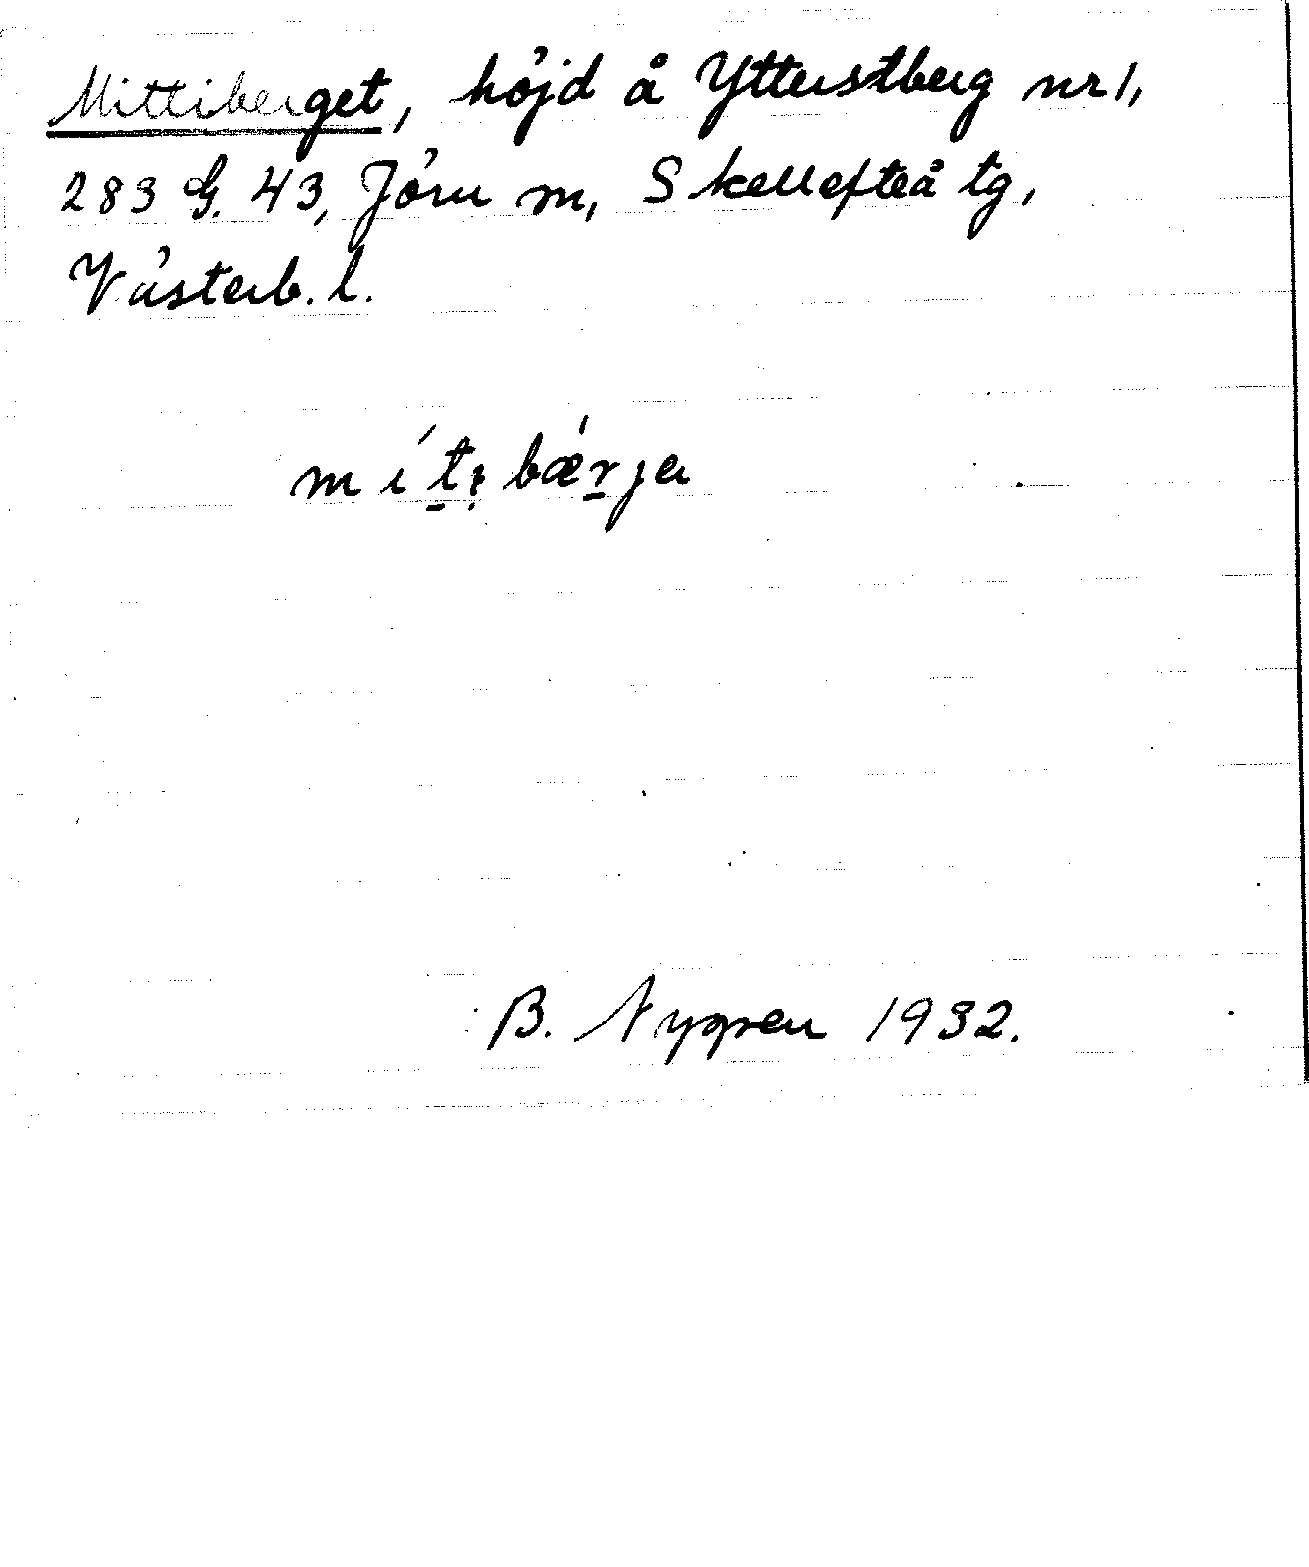 Mittiberget, höjd å Ytterstberg nr 1,
283 G. 43, Jörn m, Skellefteå tg,
Västerb. l.
mítˌi bǽrja
B. Nygren 1932.